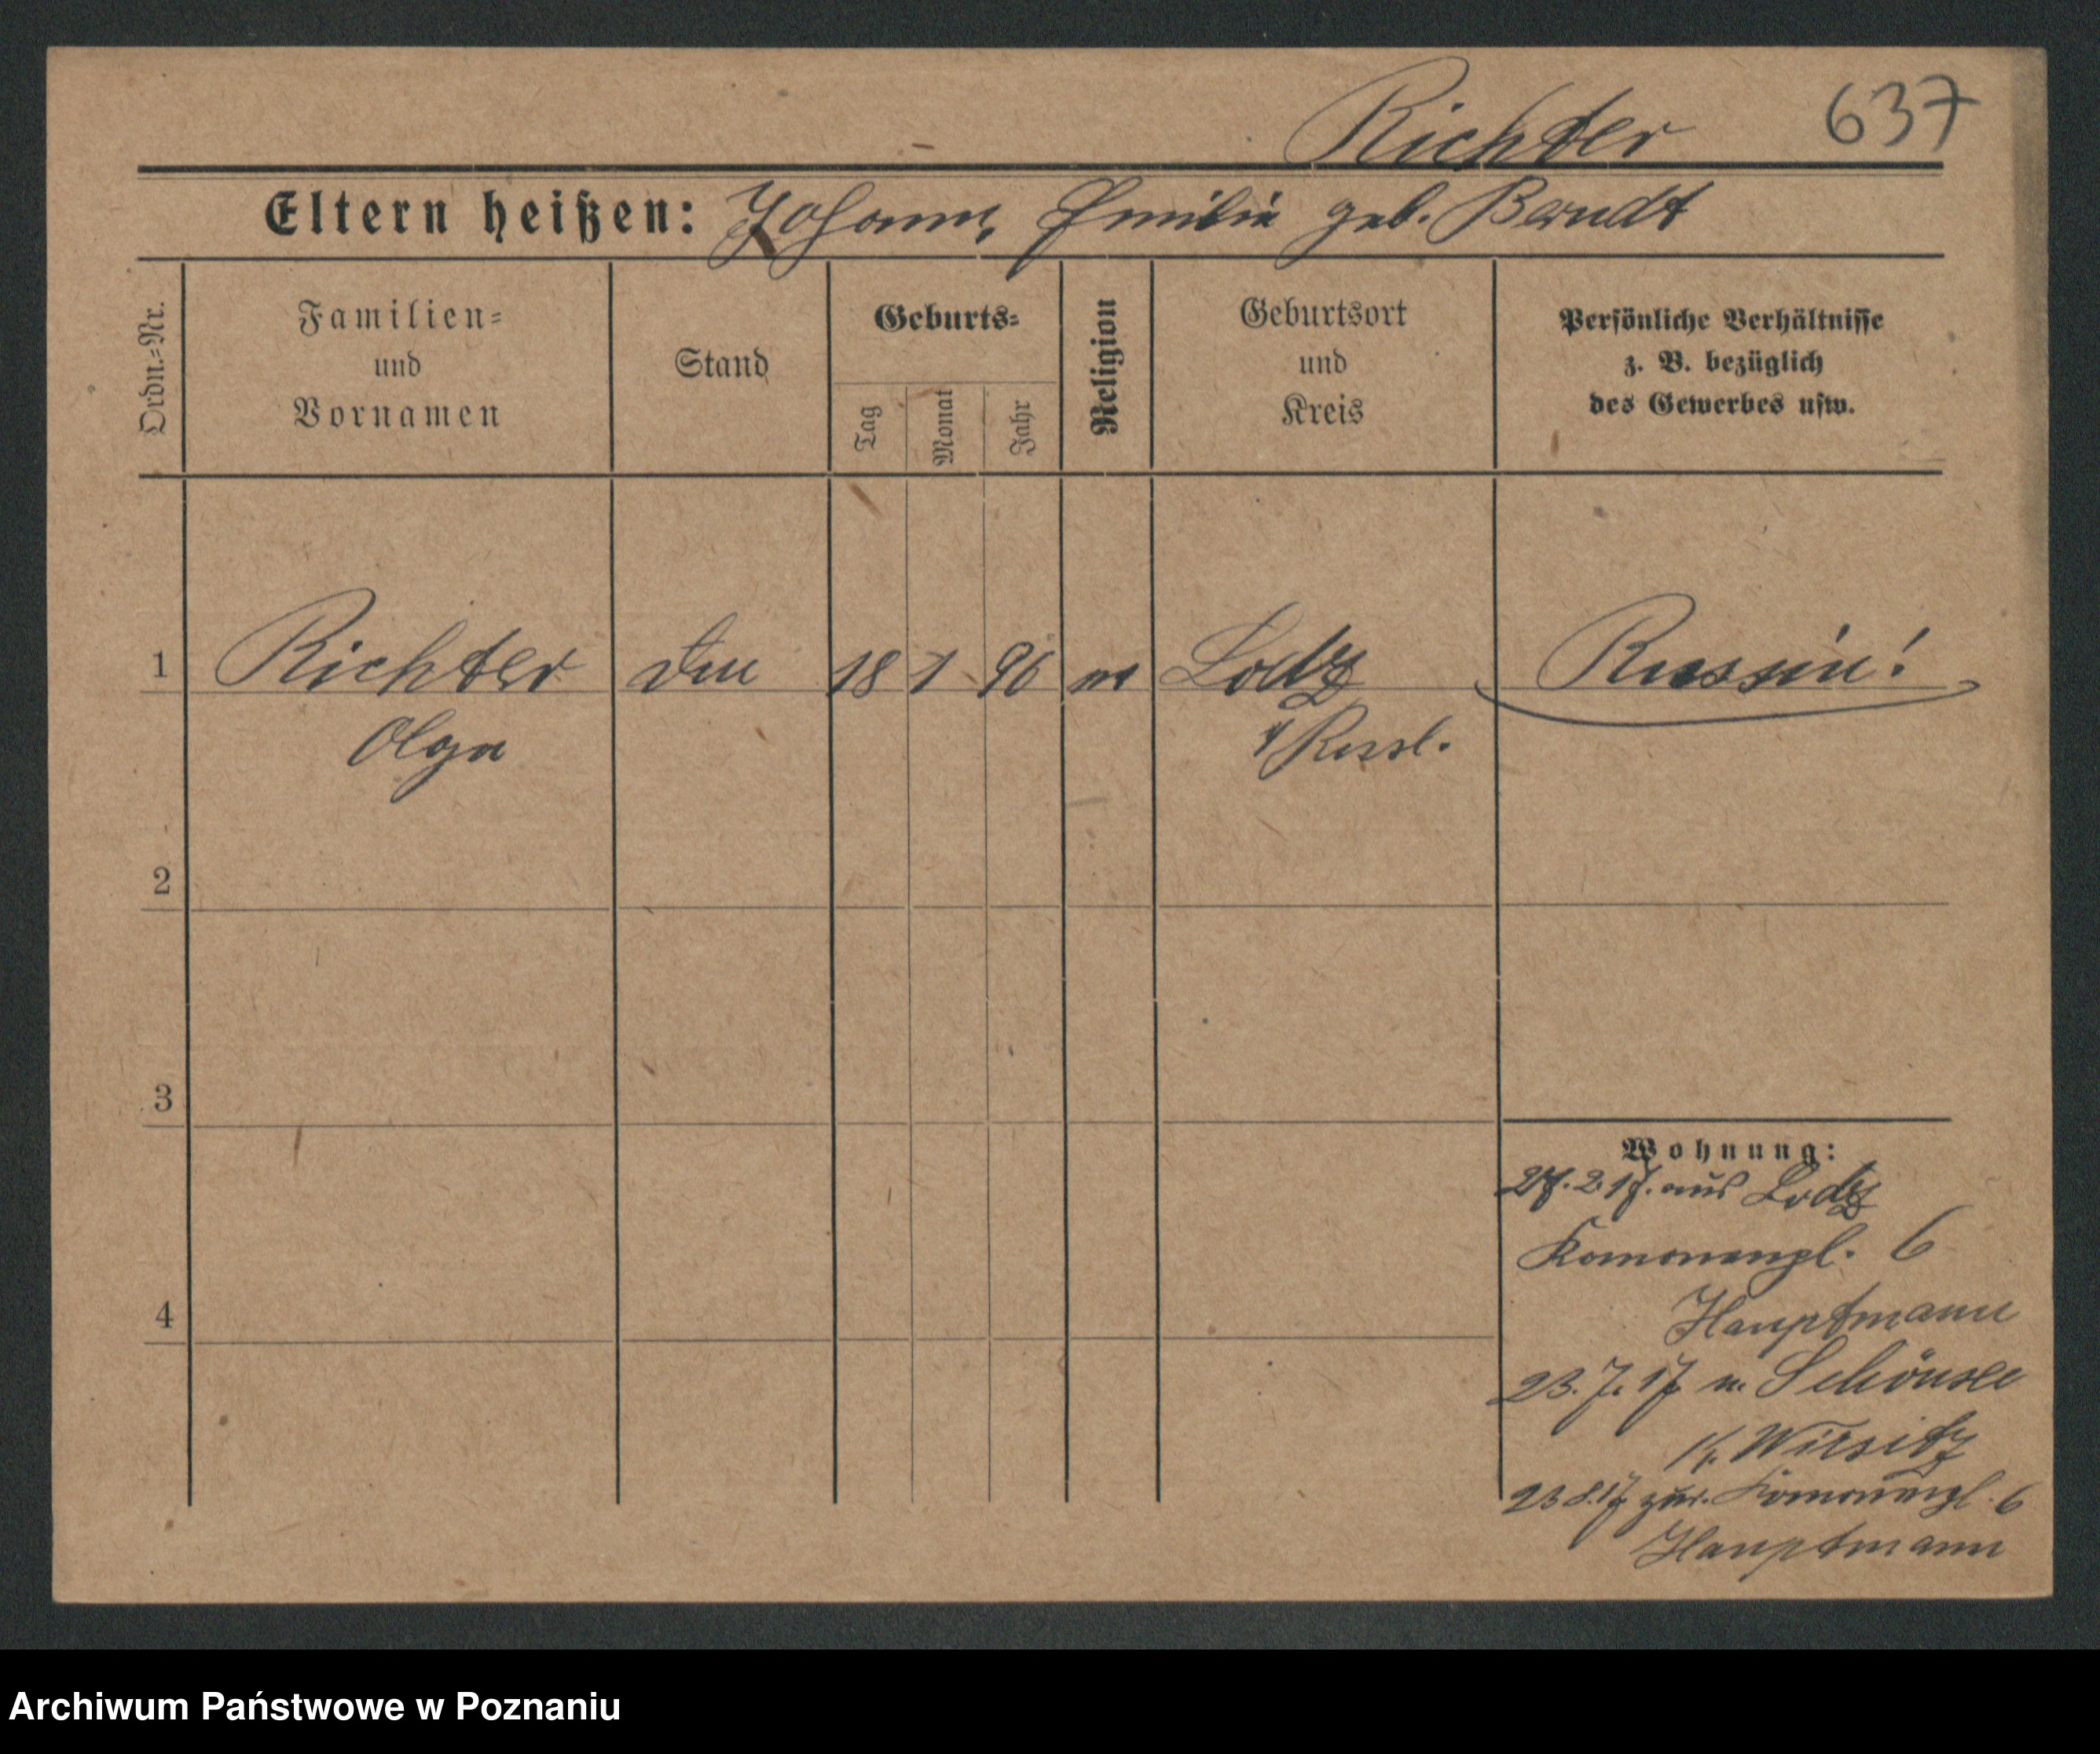 Richter 637
Eltern heißen: Johann, Emilie geb. Berndt
Ordn.=Nr.
Familien=
und
Vornamen
Stand
Geburts=
Tag
Monat
Jahr
Religion
Geburtsort
und
Kreis
Persönliche Verhältnisse
z. B. bezüglich
des Gewerbes usw.
1 Richter 18 1 96 Lodz Russin!
Olga Russl.
2
3
4
Wohnung:
27. 2. 17. aus Lodz
6
Hauptmann
23. 7. 17 n. Schönsee
Kr. Wirsitz
23 8. 17 zur. 6
Hauptmann
Archiwum Państwowe w Poznaniu